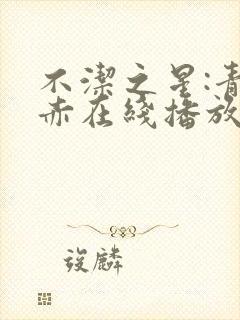 不潔之星:青
赤在綫播放
後麟